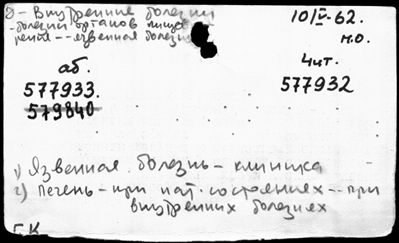 8 - Внутренние болезни
-болезни органов пище
рения -- язвенная болезнь
10/IV-62.
н.о.
аб.
577933.
579840
Чит.
577932
1) Язвенная болезнь - клиника
2) Печень - при пат. состояниях -- при
внутренних болезнях
Г.К.